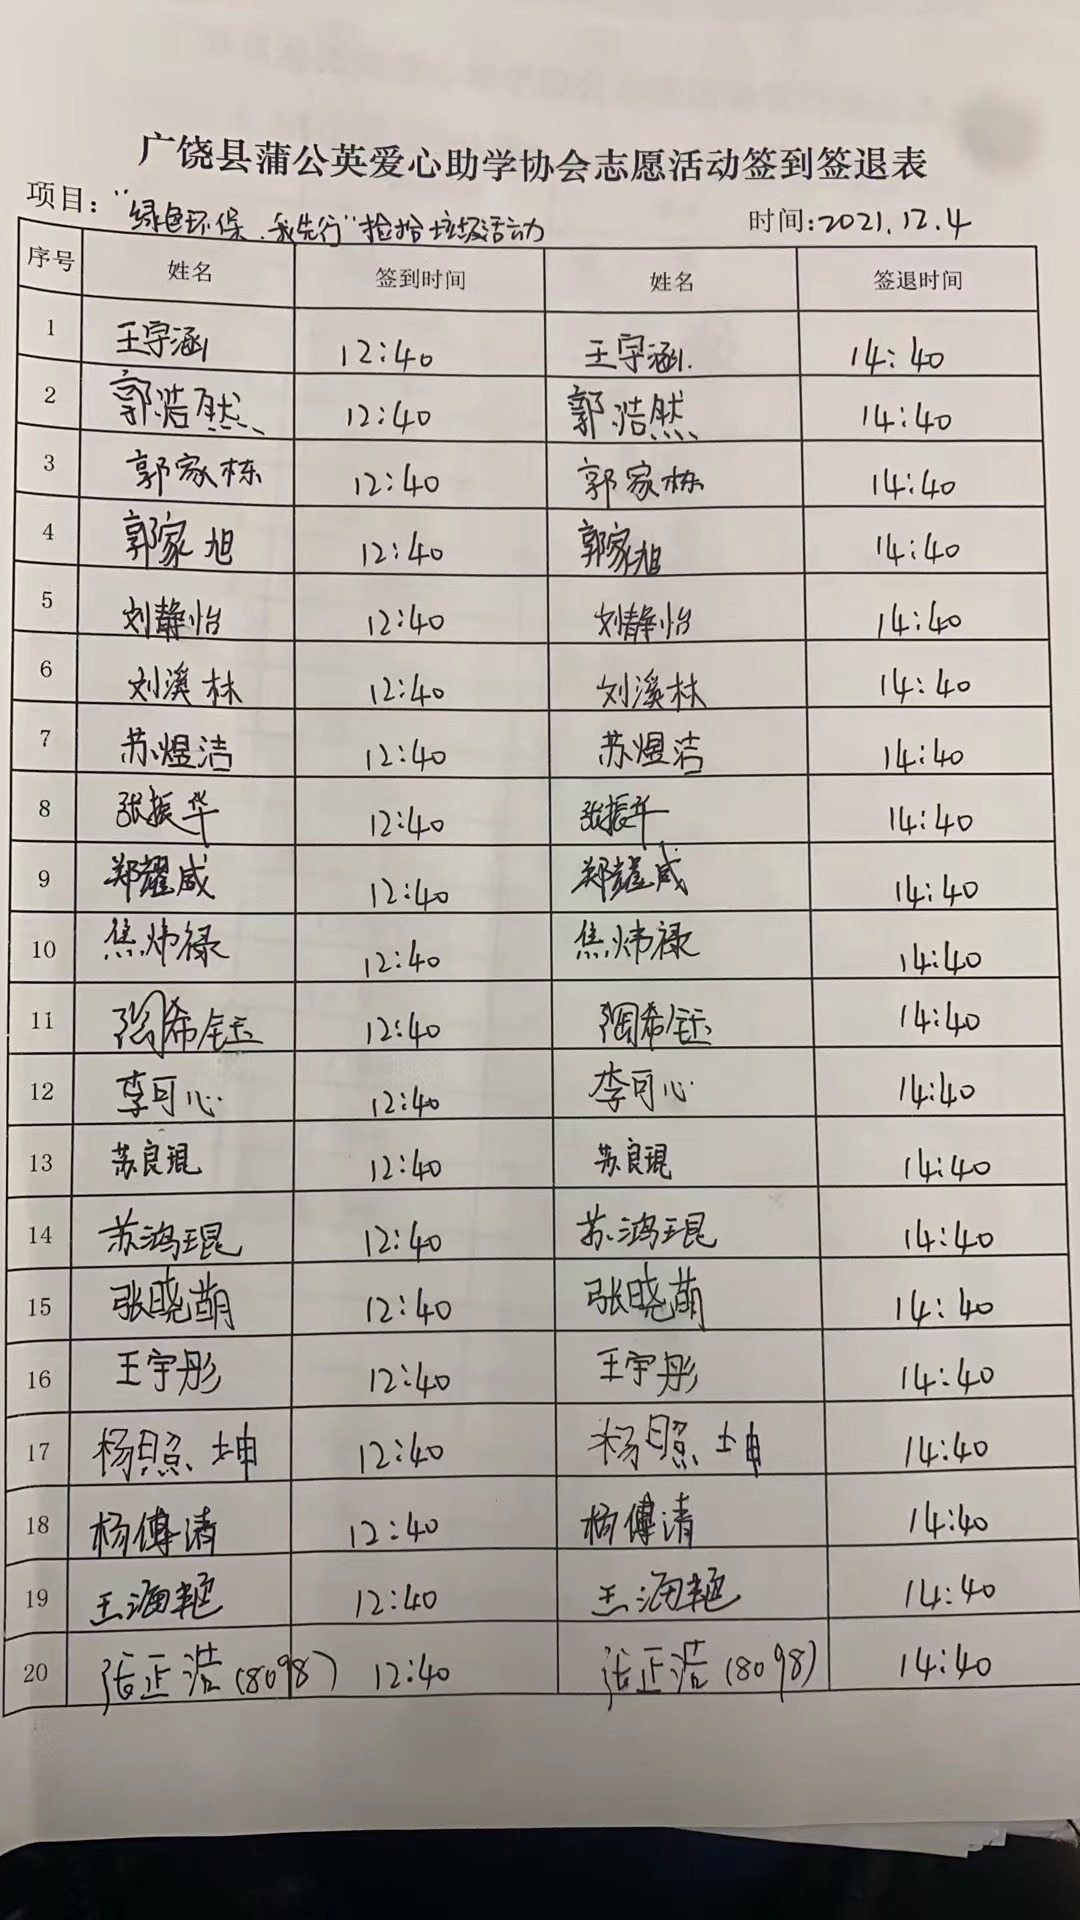 广饶县蒲公英爱心助学协会志愿活动签到签退表
项目："绿色环保.我先行"捡拾垃圾活动 时间：2021.12.4
序号 姓名 签到时间 姓名 签退时间
1 王宇涵 12:40 王宇涵. 14:40
2 郭浩然 12:40 郭浩然 14:40
3 郭家栋 12:40 郭家栋 14:40
4 郭家旭 12:40 郭家旭 14:40
5 刘静怡 12:40 刘静怡 14:40
6 刘溪林 12:40 刘溪林 14:40
7 苏煜洁 12:40 苏煜洁 14:40
8 张振华 12:40 张振华 14:40
9 郑耀威 12:40 郑耀威 14:40
10 焦炜禄 12:40 焦炜禄 14:40
11 希钰 12:40 希钰 14:40
12 李可心 12:40 李可心 14:40
13 苏良琨 12:40 苏良琨 14:40
14 苏鸿琨 12:40 苏鸿琨 14:40
15 张晓萌 12:40 张晓萌 14:40
16 王宇彤 12:40 王宇彤 14:40
17 杨照坤 12:40 杨照坤 14:40
18 杨傅清 12:40 杨傅清 14:40
19 王海艳 12:40 王海艳 14:40
20 张正浩(8098) 12:40 张正浩(8098) 14:40